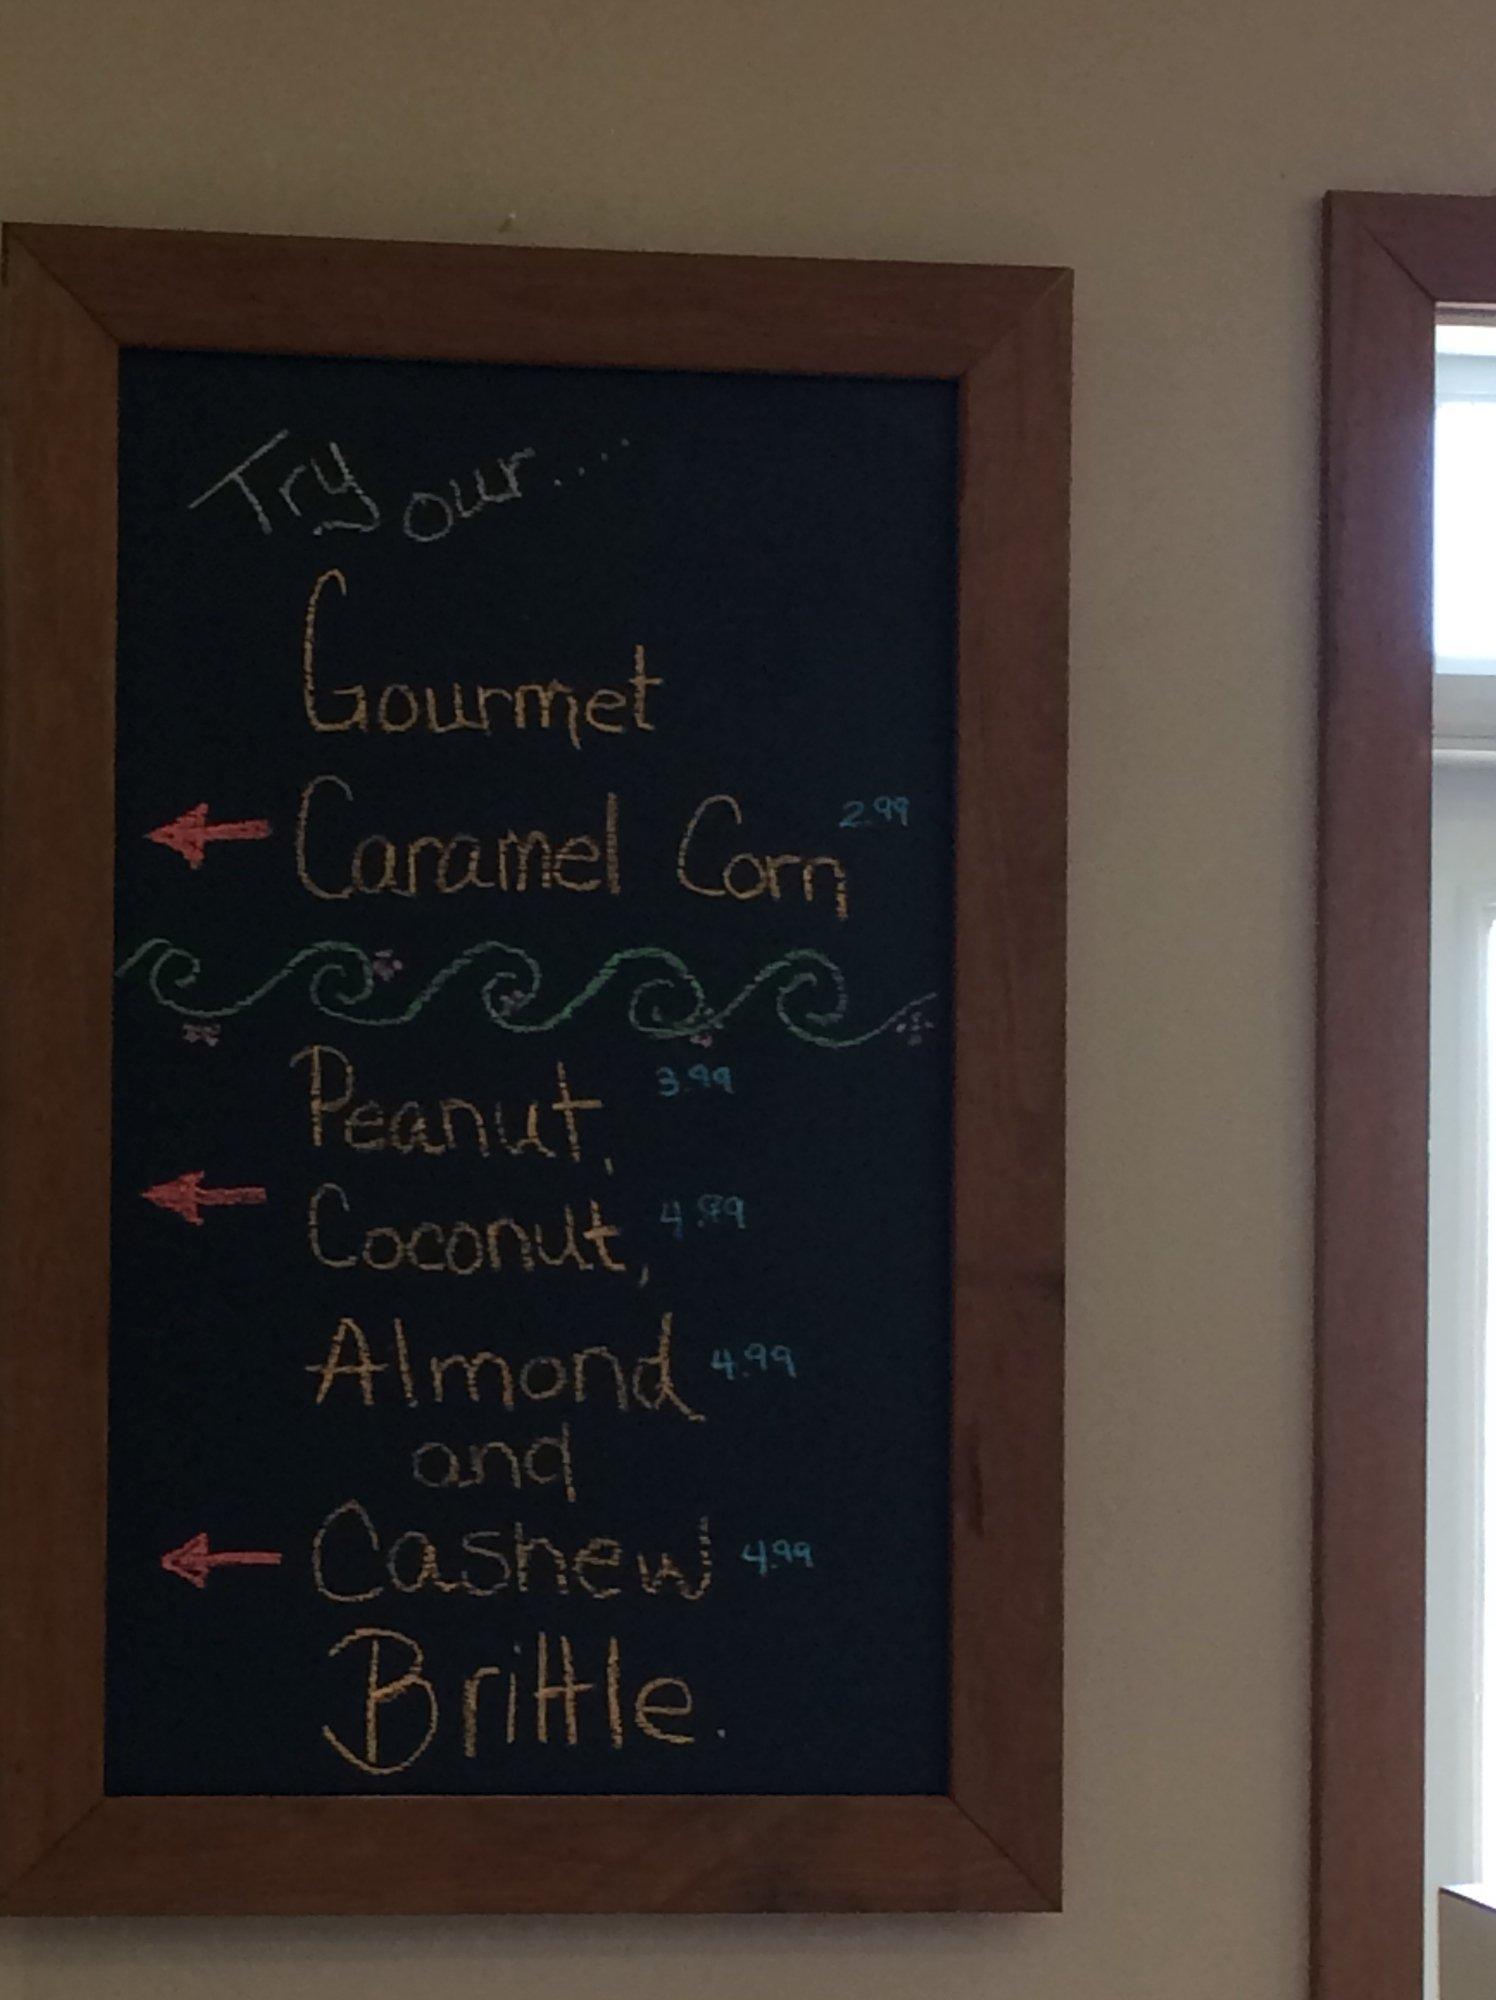 Try our....
Gourmet
Caramel Corn 2.99
Peanut, 3.99
Coconut, 4.99
Almond 4.99
and
Cashew 4.99
Brittle.